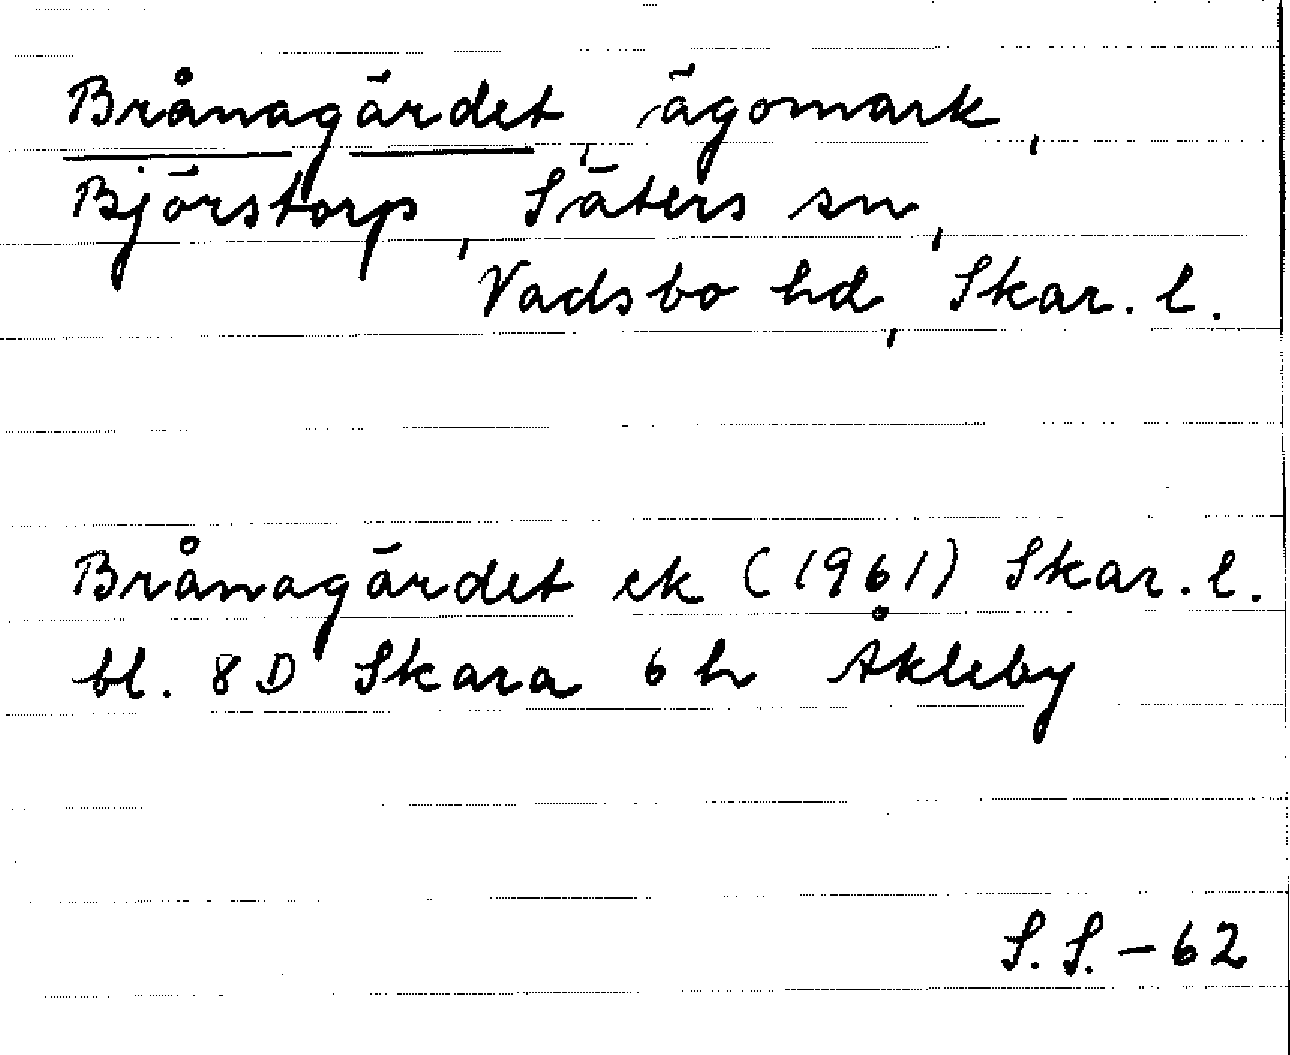 Brånagärdet, ägomark,
Björstorp, Säters sn,
Vadsbo hd, Skar. l.
Brånagärdet ek (1961) Skar. l.
bl. 8 D Skara 6 h Åkleby
S. S. - 62